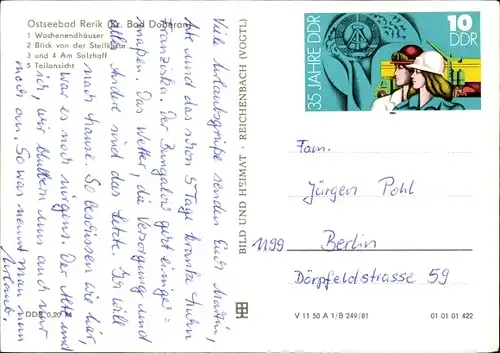 Ostseebad Rerik Kr. Bad Doberan
1 Wochenendhäuser
2 Blick von der Steilküste
3 und 4 Am Salzhaff
5 Teilansicht
Viele Urlaubsgrüße senden Euch Martin,
Ute und das schon 5 Tage kranke Huhn
Franziska. Der Bungalow geht einiger=
maßen. Das Wetter, die Versorgung und
alles Andere sind das Letzte. Ich will
nach Hause. So beschissen wie hier,
war es noch nirgens. Der Alte und
ich, wir blubbern uns auch nur
noch an. So was nennt man nun
Urlaub.
DDR 0,20 M
BILD UND HEIMAT · REICHENBACH (VOGTL)
35 JAHRE DDR
10
DDR
Fam.
Jürgen Pohl
1199 Berlin
Dörpfeldstrasse 59
V 11 50 A 1/B 249/81
01 01 01 422